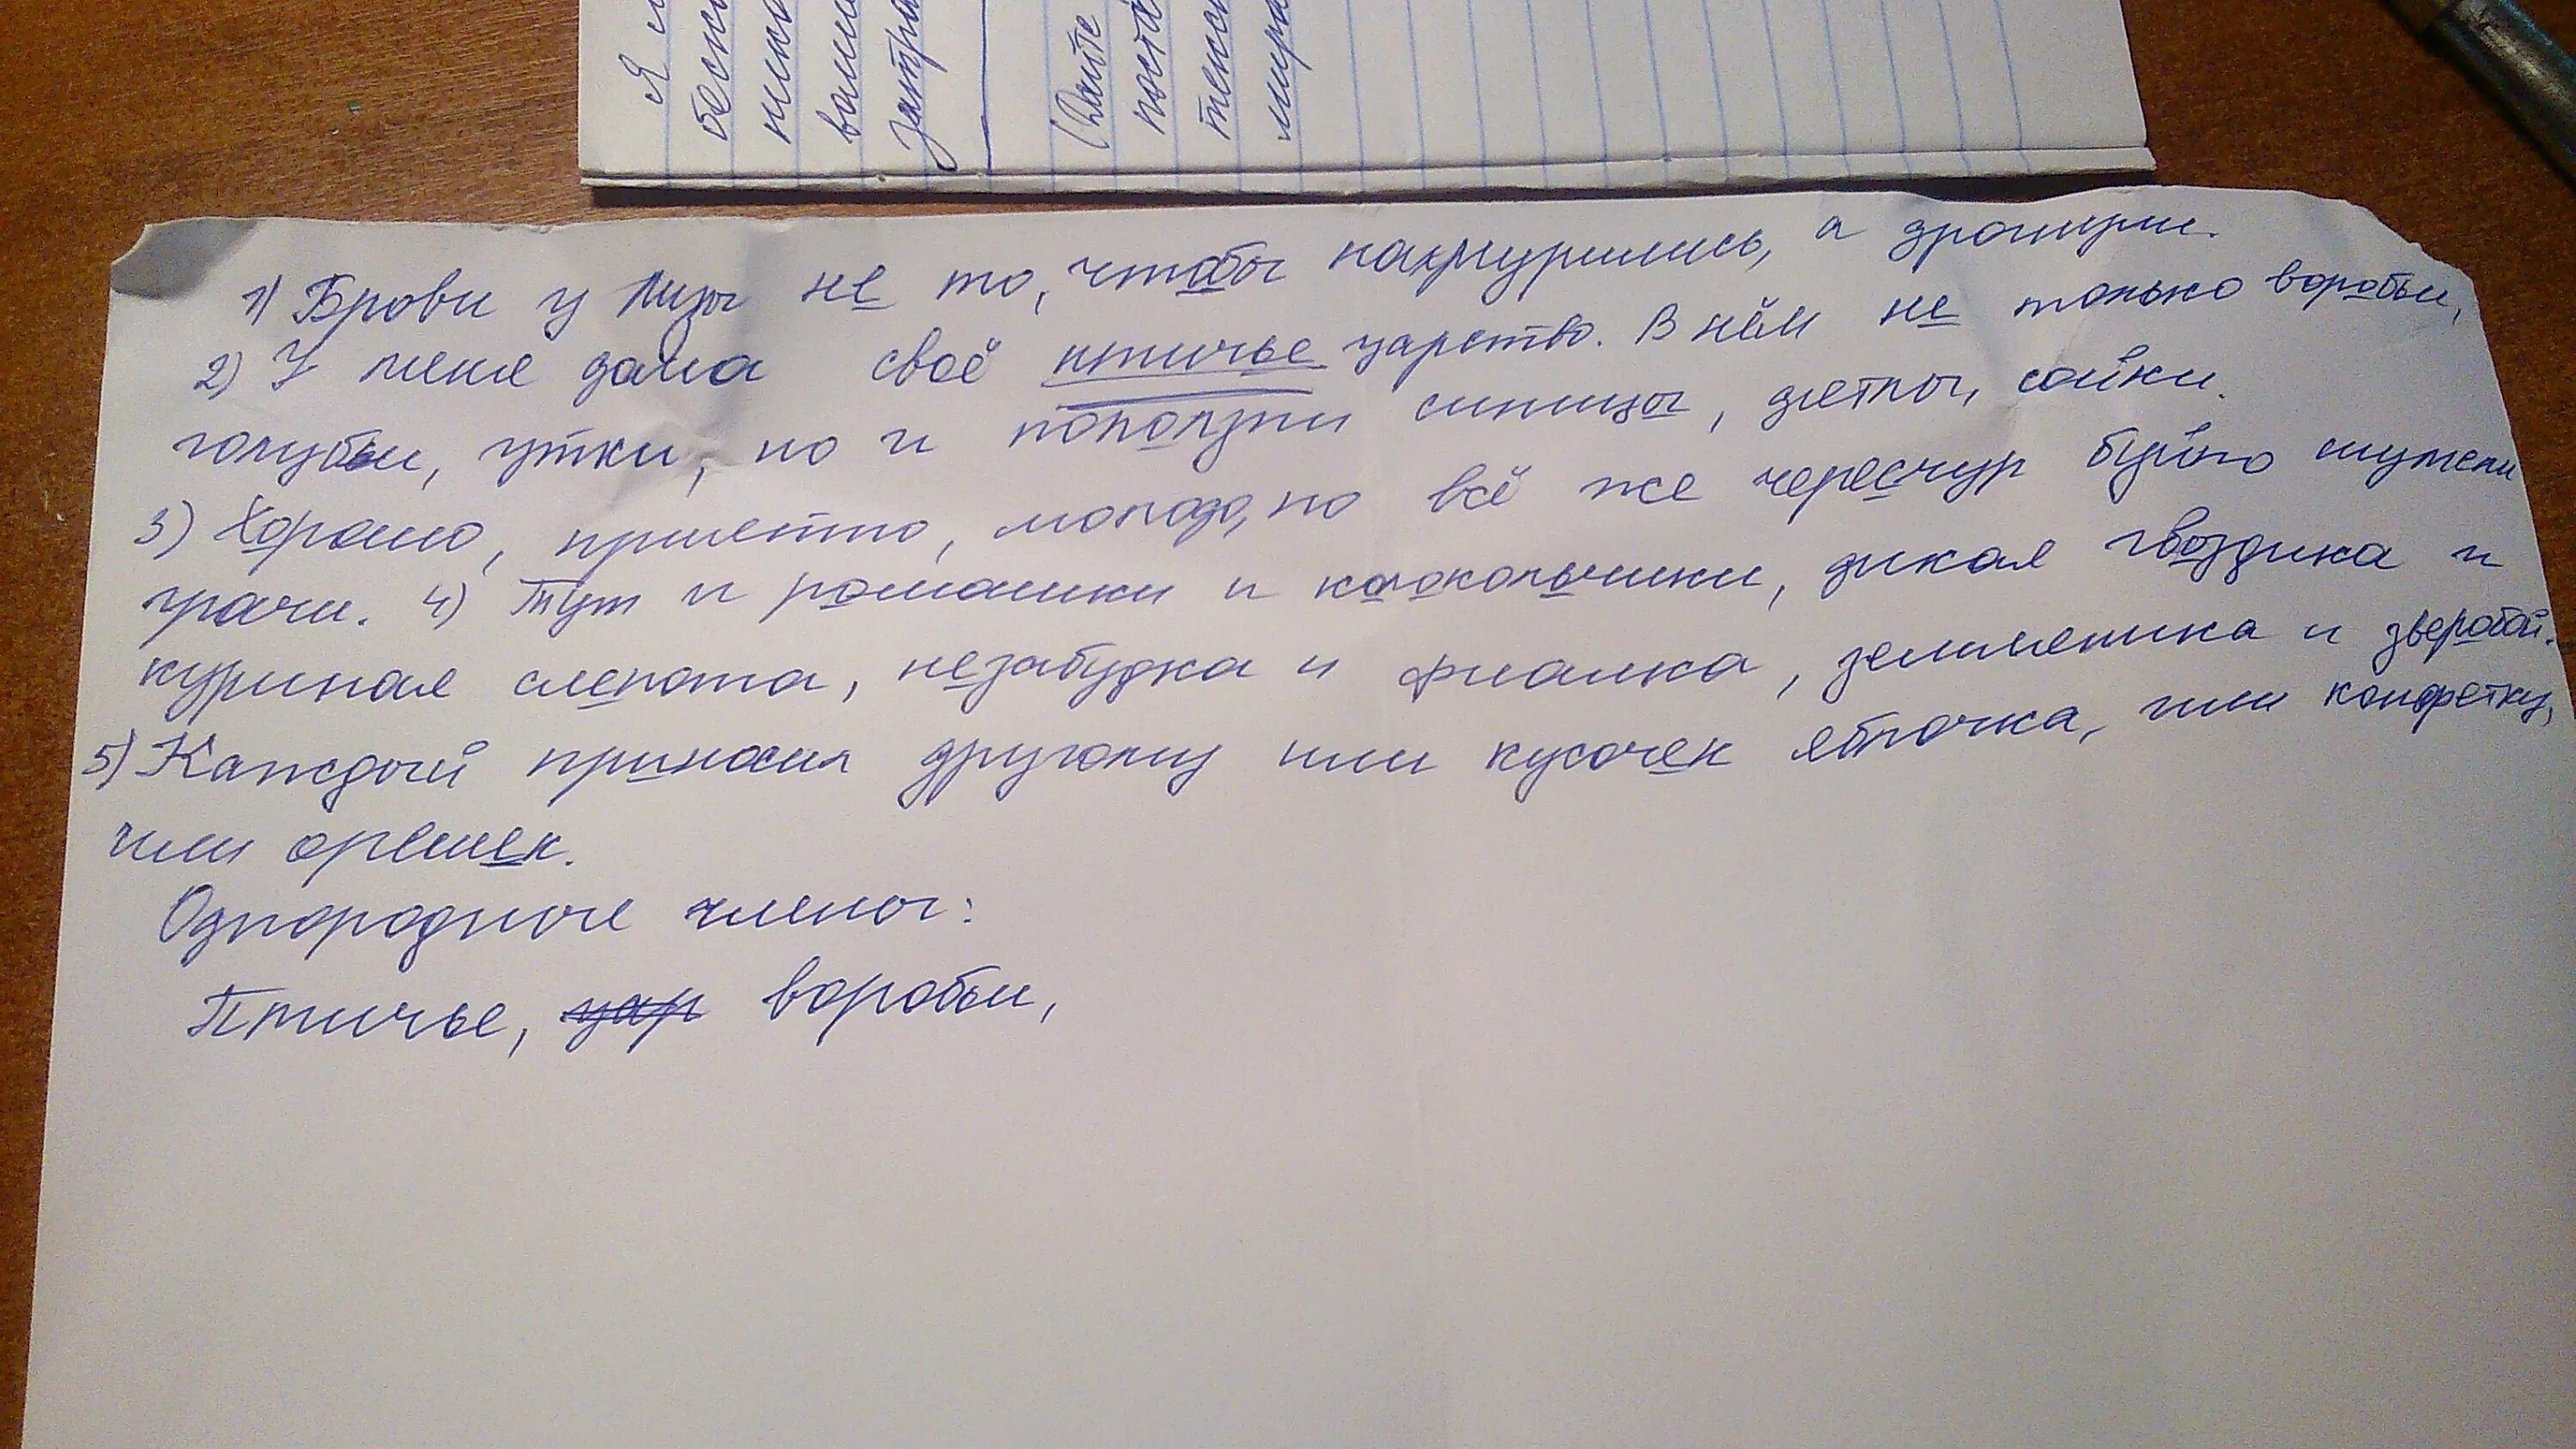 Я
бесп
ника
вами
затра
(Дайте
поста
текс
мира
1) Брови у Лизы не то, чтобы нахмурились, а дрогнули.
2) У меня дома своё птичье царство. В нём не только воробьи,
голубьи, утки, но и поползни синицы, дятлы, сойки.
3) Хорошо, приятно, молодо, но всё же чересчур буйно шумели
грачи. 4) Тут и ромашки и колокольчики, дикая гвоздика и
куриная слепота, незабудка и фиалка, земляника и зверобой.
5) Каждый приносил другому или кусочек яблочка, или конфетку,
или орешек.
Однородные члены:
Птичье, цар воробьи,